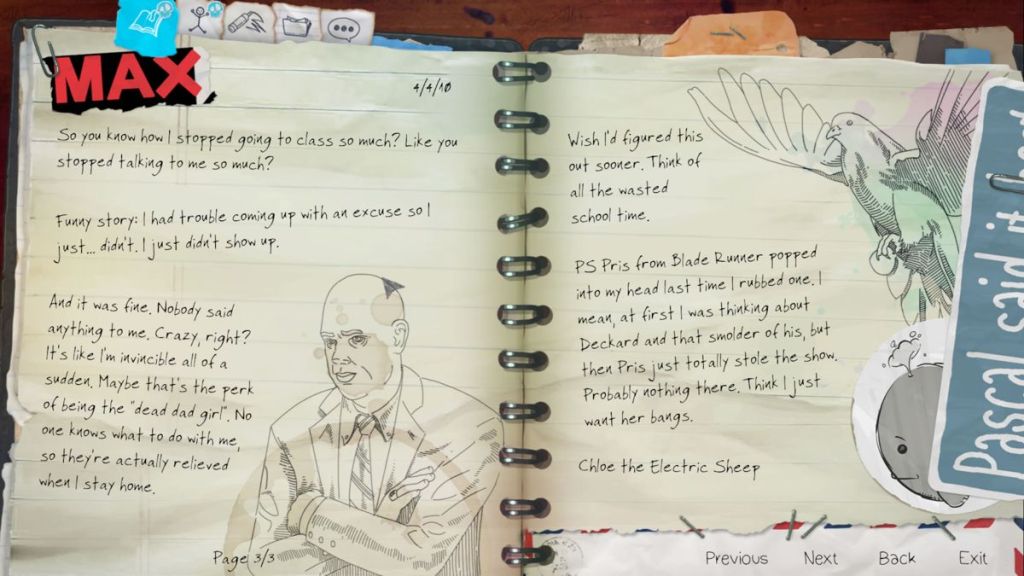 MAX
4/4/10
So you know how I stopped going to class so much? Like you
stopped talking to me so much?
Funny story: I had trouble coming up with an excuse so I
just... didn't. I just didn't show up.
And it was fine. Nobody said
anything to me. Crazy, right?
It's like I'm invincible all of a
sudden. Maybe that's the perk
of being the "dead dad girl". No
one knows what to do with me,
so they're actually relieved
when I stay home.
Page 3/3
Wish I'd figured this
out sooner. Think of
all the wasted
school time.
PS Pris from Blade Runner popped
into my head last time I rubbed one. I
mean, at first I was thinking about
Deckard and that smolder of his, but
then Pris just totally stole the show.
Probably nothing there. Think I just
want her bangs.
Chloe the Electric Sheep
Pascal said it best
Previous Next Back Exit